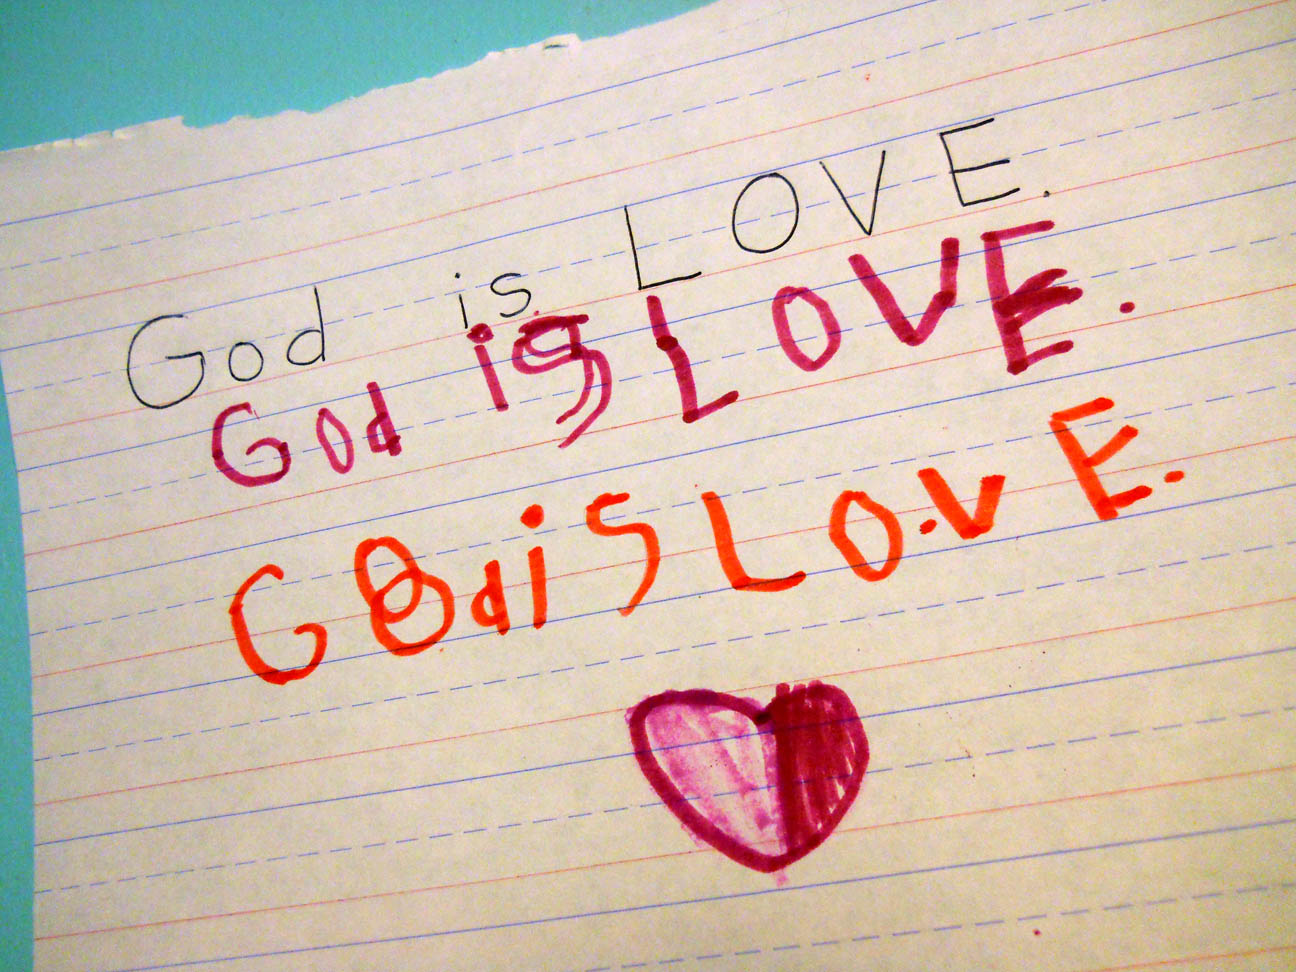 God is LOVE.
God is LOVE.
God is LO.VE.